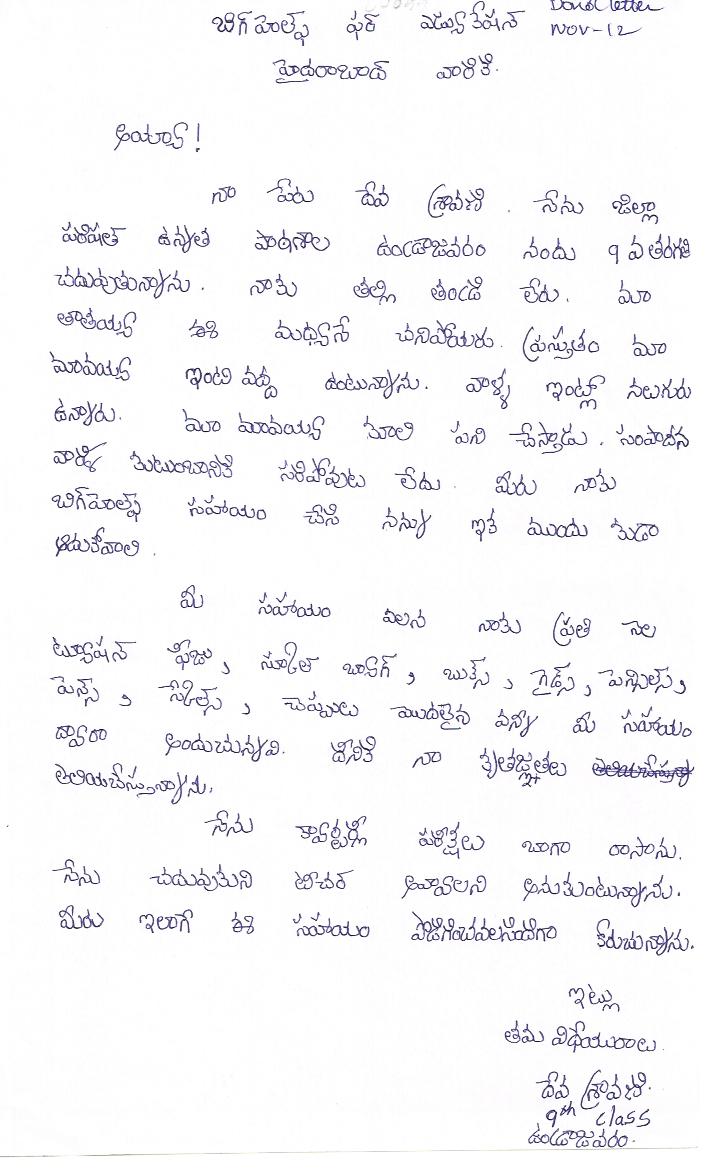 Donor Letter
బిగ్ హెల్ప్ ఫర్ ఎడ్యుకేషన్ NOV-12
హైదరాబాద్ వారికి.
అయ్యా!
నా పేరు దేవ శ్రావణి. నేను జిల్లా
పరిషత్ ఉన్నత పాఠశాల ఉండ్రాజవరం నందు 9 వ తరగతి
చదువుతున్నాను. నాకు తల్లి తండ్రి లేరు. మా
తాతయ్య ఈ మధ్యనే చనిపోయరు. ప్రస్తుతం మా
మావయ్య ఇంటి వద్ద ఉంటున్నాను. వాళ్ళ ఇంట్లో నలుగురు
ఉన్నారు. మా మావయ్య కూలి పని చేస్తాడు. సంపాదన
వాళ్ళ కుటుంబానికి సరిపోవుట లేదు. మీరు నాకు
బిగ్ హెల్ప్ సహాయం చేసి నన్ను ఇక ముందు కుడా
ఆదుకోవాలి.
మీ సహాయం వలన నాకు ప్రతి నెల
ట్యూషన్ ఫీజు, స్కూల్ బ్యాగ్, బుక్స్, గైడ్స్, పెన్సిల్స్,
పెన్స్, స్కేల్స్, చెప్పులు మొదలైన వన్నీ మీ సహాయం
ద్వారా అందుచున్నవి. దీనికి నా కృతజ్ఞతలు తెలియచేస్తున్నా
తెలియచేస్తున్నాను.
నేను క్వార్టర్లీ పరీక్షలు బాగా రాసాను.
నేను చదువుకుని టీచర్ అవ్వాలని అనుకుంటున్నాను.
మీరు ఇలాగే ఈ సహాయం పొడిగించవలసిందిగా కోరుచున్నాను.
ఇట్లు
తమ విధేయురాలు
దేవ శ్రావణి.
9th class
ఉండ్రాజవరం.